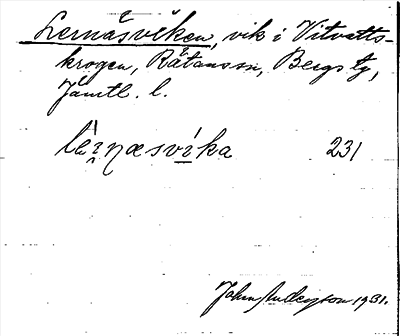 Lernäsviken, vik i Vitvatts-
krogen, Rätanssn, Bergs tg,
Jämtl. l.
lèi̯ṇæsvíka 231
John Anderson 1931.